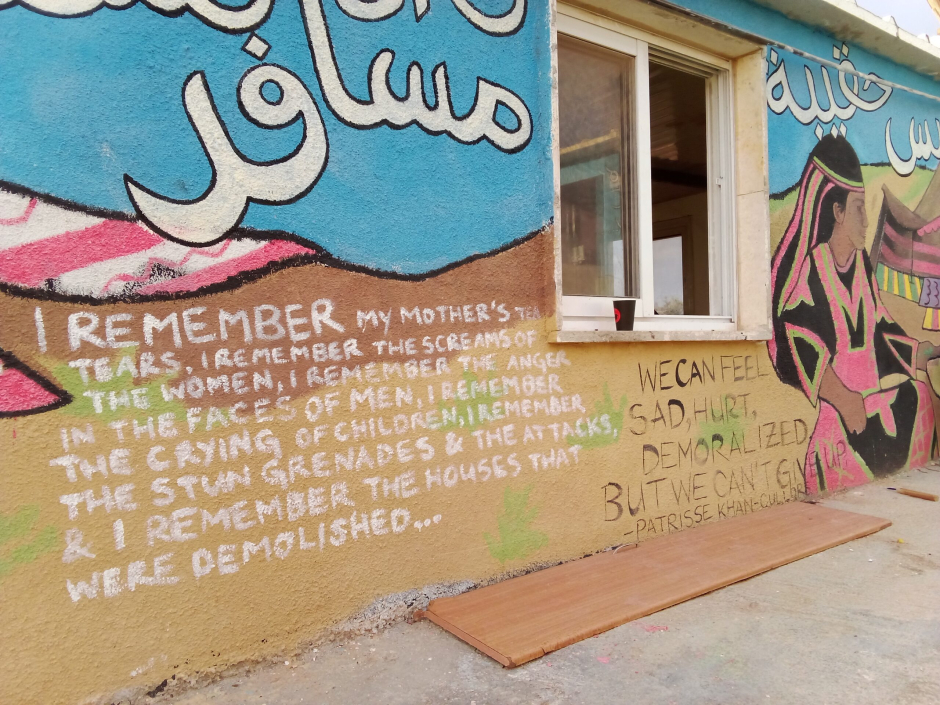 مسافر
حقيبة
I REMEMBER MY MOTHER'S
TEARS, I REMEMBER THE SCREAMS OF
THE WOMEN, I REMEMBER THE ANGER
IN THE FACES OF MEN, I REMEMBER
THE CRYING OF CHILDREN, I REMEMBER
THE STUN GRENADES & THE ATTACKS,
& I REMEMBER THE HOUSES THAT
WERE DEMOLISHED...
WE CAN FEEL
SAD, HURT,
DEMORALIZED,
BUT WE CAN'T GIVE UP.
-PATRISSE KHAN-CULLORS